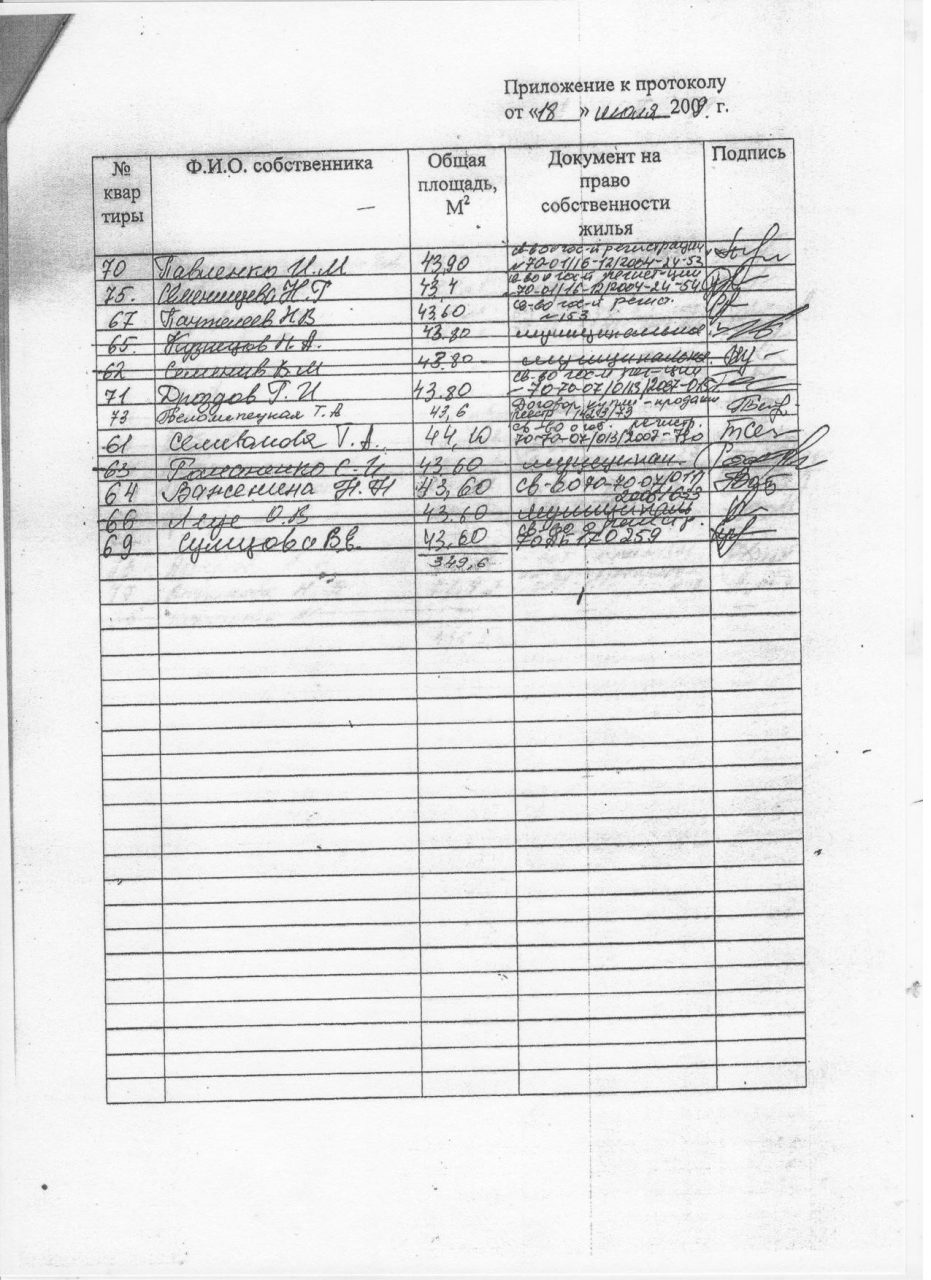 Приложение к протоколу
от «18» июля 2009 г.
№ квар тиры Ф.И.О. собственника Общая площадь, М² Документ на право собственности жилья Подпись
70 Павленко И.М 43,90 св-во гос-й регистрации
№70-01/16-12/2004-24-53
75. Н.Г 43,4 св-во гос-й регист-ции
-70-01/16-12/2004-24-54
67 Н В 43,60 св-во гос-й регис.
№153
65. Кузнецов Н.А. 43.80 муниципальная
62 Семенив В М 43.80 муниципальная
71 Дроздов Г. И 43.80 св-во гос-й рег-ции
-70-70-07/013/2007-015
73 Т. А 43,6 Договор купли-продажи
61 Селиванова Т. А. 44,10 св-во о гос. регистр.
70-70-07/013/2007-720
63 С-И 43,60 муниципал.
64 Важенина Н. Н 43,60 св-во 70-70-07/017/
66 О.В 43,60
69 Сумцова В.В. 43,60
70АБ 170259
349,6